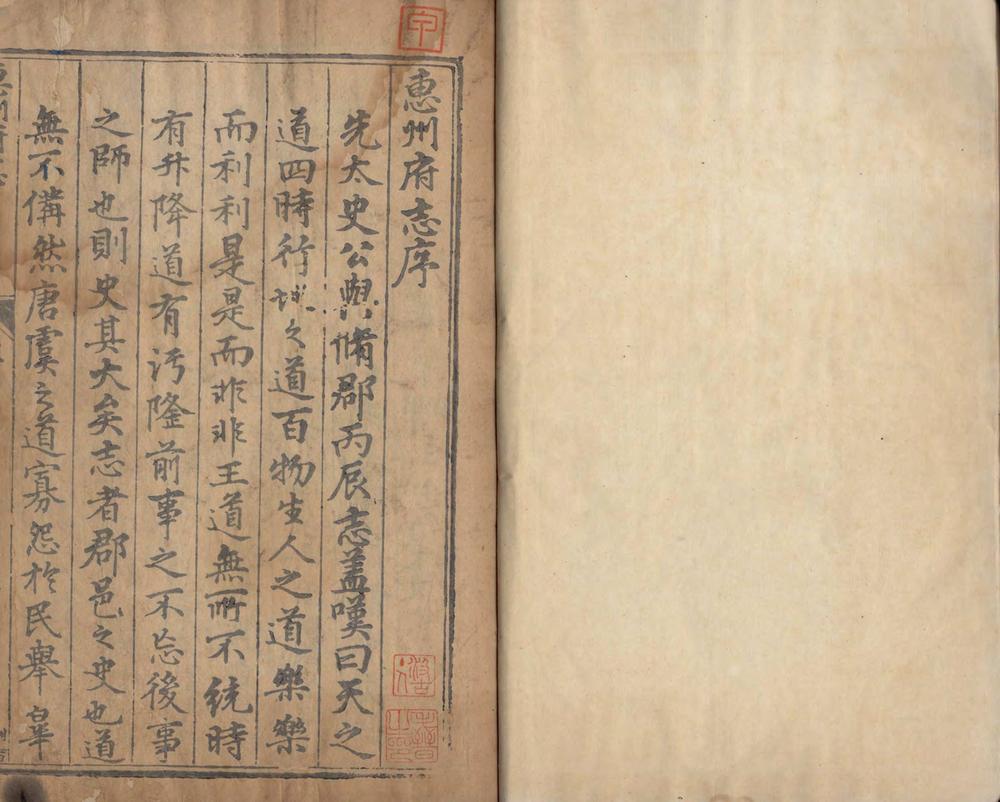 惠州府志序
先太史公與脩郡丙辰志盖嘆曰天之
道四時行地之道百物生人之道樂樂
而利利是是而非非王道無所不統時
有升降道有污隆前事之不忘後事
之師也則史其大矣志者郡邑之史也道
無不備然唐虞之道寡怨於民舉皋